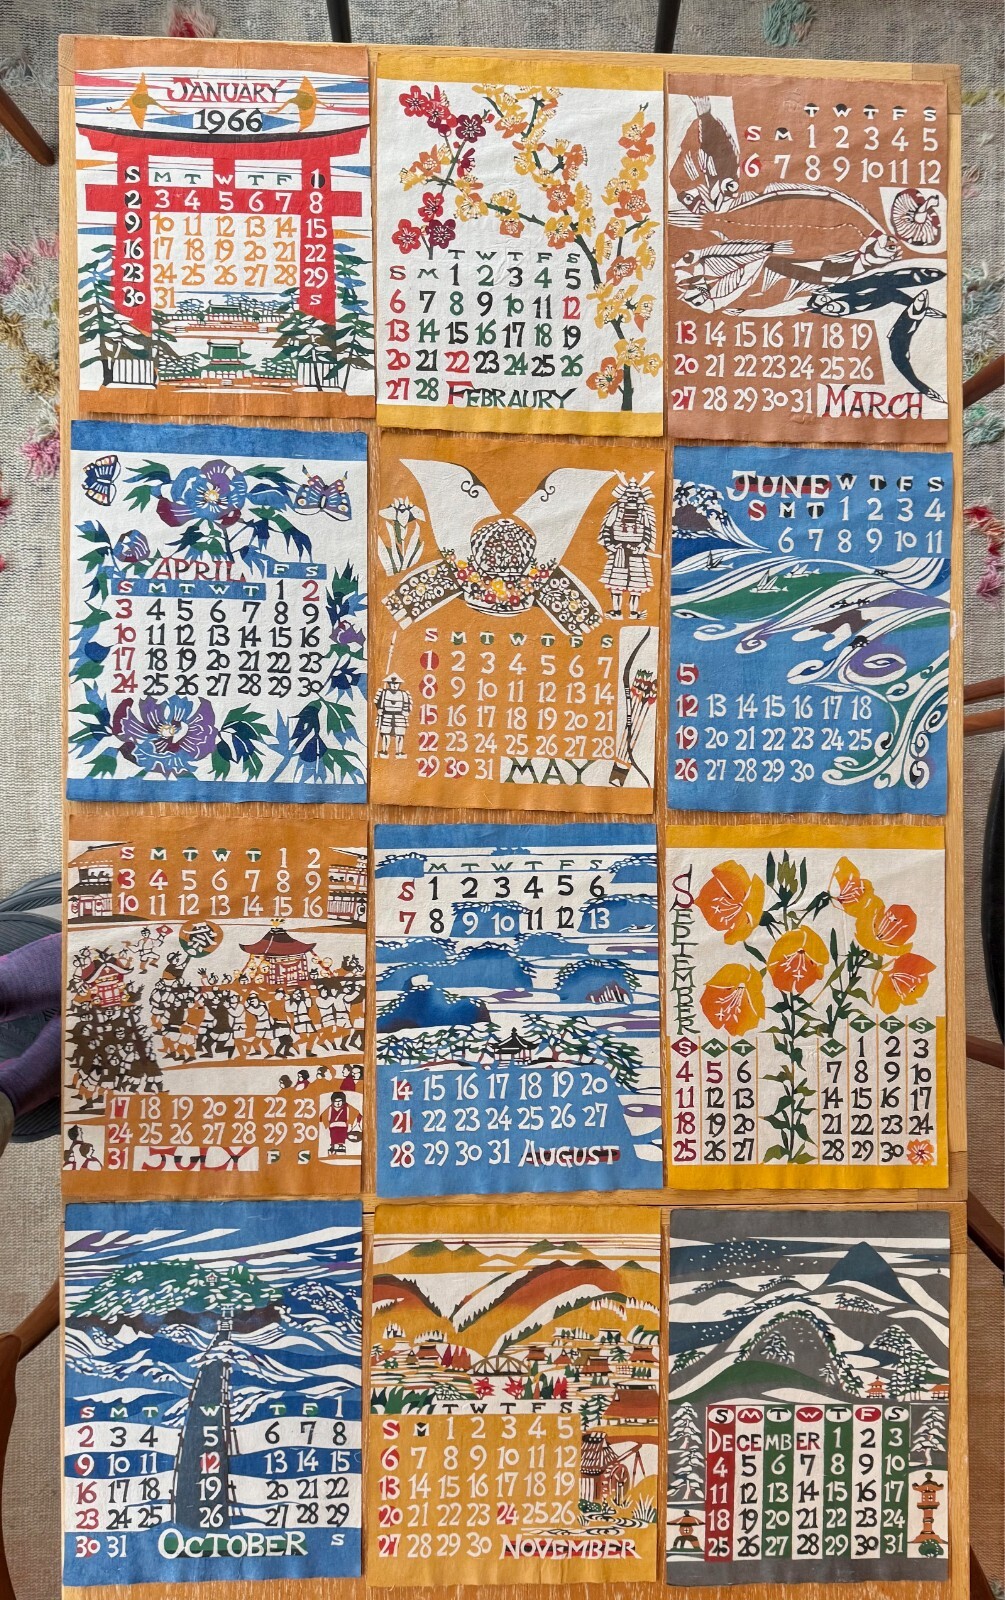 JANUARY
1966
S M T W T F 1
2 3 4 5 6 7 8
9 10 11 12 13 14 15
16 17 18 19 20 21 22
23 24 25 26 27 28 29
30 31 S
T W T F S
S M 1 2 3 4 5
6 7 8 9 10 11 12
13 14 15 16 17 18 19
20 21 22 23 24 25 26
27 28 FEBRAURY
T W T F S
S M 1 2 3 4 5
6 7 8 9 10 11 12
13 14 15 16 17 18 19
20 21 22 23 24 25 26
27 28 29 30 31 MARCH
APRIL F S
S M T W T 1 2
3 4 5 6 7 8 9
10 11 12 13 14 15 16
17 18 19 20 21 22 23
24 25 26 27 28 29 30
S M T W T F S
1 2 3 4 5 6 7
8 9 10 11 12 13 14
15 16 17 18 19 20 21
22 23 24 25 26 27 28
29 30 31 MAY
JUNE W T F S
S M T 1 2 3 4
6 7 8 9 10 11
5
12 13 14 15 16 17 18
19 20 21 22 23 24 25
26 27 28 29 30
S M T W T 1 2
3 4 5 6 7 8 9
10 11 12 13 14 15 16
祭
17 18 19 20 21 22 23
24 25 26 27 28 29 30
31 JULY F S
M T W T F S
S 1 2 3 4 5 6
7 8 9 10 11 12 13
14 15 16 17 18 19 20
21 22 23 24 25 26 27
28 29 30 31 AUGUST
SEPTEMBER
T F S
S M T W 1 2 3
4 5 6 7 8 9 10
11 12 13 14 15 16 17
18 19 20 21 22 23 24
25 26 27 28 29 30
S M T W T F 1
2 3 4 5 6 7 8
9 10 11 12 13 14 15
16 17 18 19 20 21 22
23 24 25 26 27 28 29
30 31 OCTOBER S
T W T F S
S M 1 2 3 4 5
6 7 8 9 10 11 12
13 14 15 16 17 18 19
20 21 22 23 24 25 26
27 28 29 30 NOVEMBER
S M T W T F S
DECEMBER 1 2 3
4 5 6 7 8 9 10
11 12 13 14 15 16 17
18 19 20 21 22 23 24
25 26 27 28 29 30 31